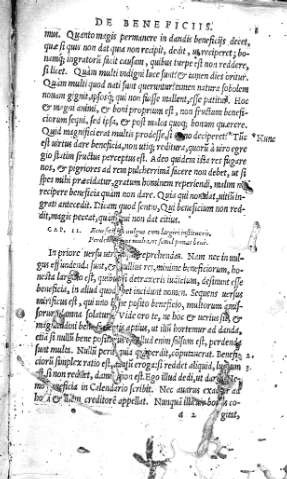 DE BENEFICIIS. 8
mur. Quanto magis permanere in dandis beneficijs decet,
quæ si quis non dat quia non recipit, dedit, ut reciperet; bo-
namq; ingratorū facit causam, quibus turpe est non reddere,
si licet. Quàm multi indigni luce sunt? & tamen dies oritur.
Quàm multi quòd nati sunt queruntur? tamen natura sobolem
nouam gignit, ipsosq; qui non fuisse mallent, esse patitur. Hoc
& magni animi, & boni proprium est, non fructum benefi-
ciorum sequi, sed ipsa, & post malos quoq; bonum quærere.
Quid magnifici erat multis prodesse, si nemo deciperet? Tūc *Nunc
est uirtus dare beneficia, non utiq; reditura, quorū à uiro egre
gio statim fructus perceptus est. A deo quidem ista res fugare
nos, & pigriores ad rem pulcherrimā facere non debet, ut si
spes mihi præcidatur, gratum hominem reperiendi, malim non
recipere beneficia quàm non dare. Quia qui non dat, uitiū in-
grati antecedit. Dicam quod sentio, Qui beneficium non red-
dit, magis peccat, qui non dat citius.
CAP. II. Beneficia in uulgus cum largiri institueris,
Perdenda sunt multa, ut semel ponas bene.
In priore uersu utrunq; reprehendas. Nam nec in uul-
gus effundenda sunt, & nullius rei, minimè beneficiorum, ho-
nesta largitio est, quibus si detraxeris iudicium, desinunt esse
beneficia, in aliud quodlibet incidunt nomen. Sequens uersus
mirificus est, qui uno bene posito beneficio, multorum amis-
sorum damna solatur. Vide oro te, ne hoc & uerius sit, &
magnitudini bene aptius, ut illū hortemur ad danda,
etiā si nulli bene positurus est. Illud enim falsum est, perdenda
sunt multa. Nulli perit, quia qui perdit, cōputauerat. Benefi-
ciorū simplex ratio est, tantū erogat: si reddet aliquid, lucrum
est, si non reddet, damnum non est. Ego illud dedi, ut darem. Ne-
mo beneficia in Calendario scribit. Nec auarus exactor ad
horā & diem creditorē appellat. Nunquā illa uir bonus co-
d 2 gitat,